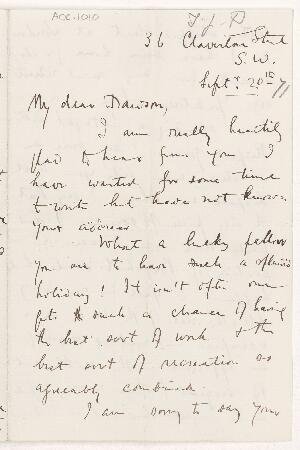 AOC-1010
36 Claverton Street
S.W.
Sept. 20th
My dear Dawson,
I am really heartily
glad to hear from you. I
have wanted for some time
to write but have not known
your address
What a lucky fellow
you are to have such a splendid
holiday! It isn't often one
gets such a chance of having
the best sort of work & the
best sort of recreation so
agreeably combined.
I am sorry to say your